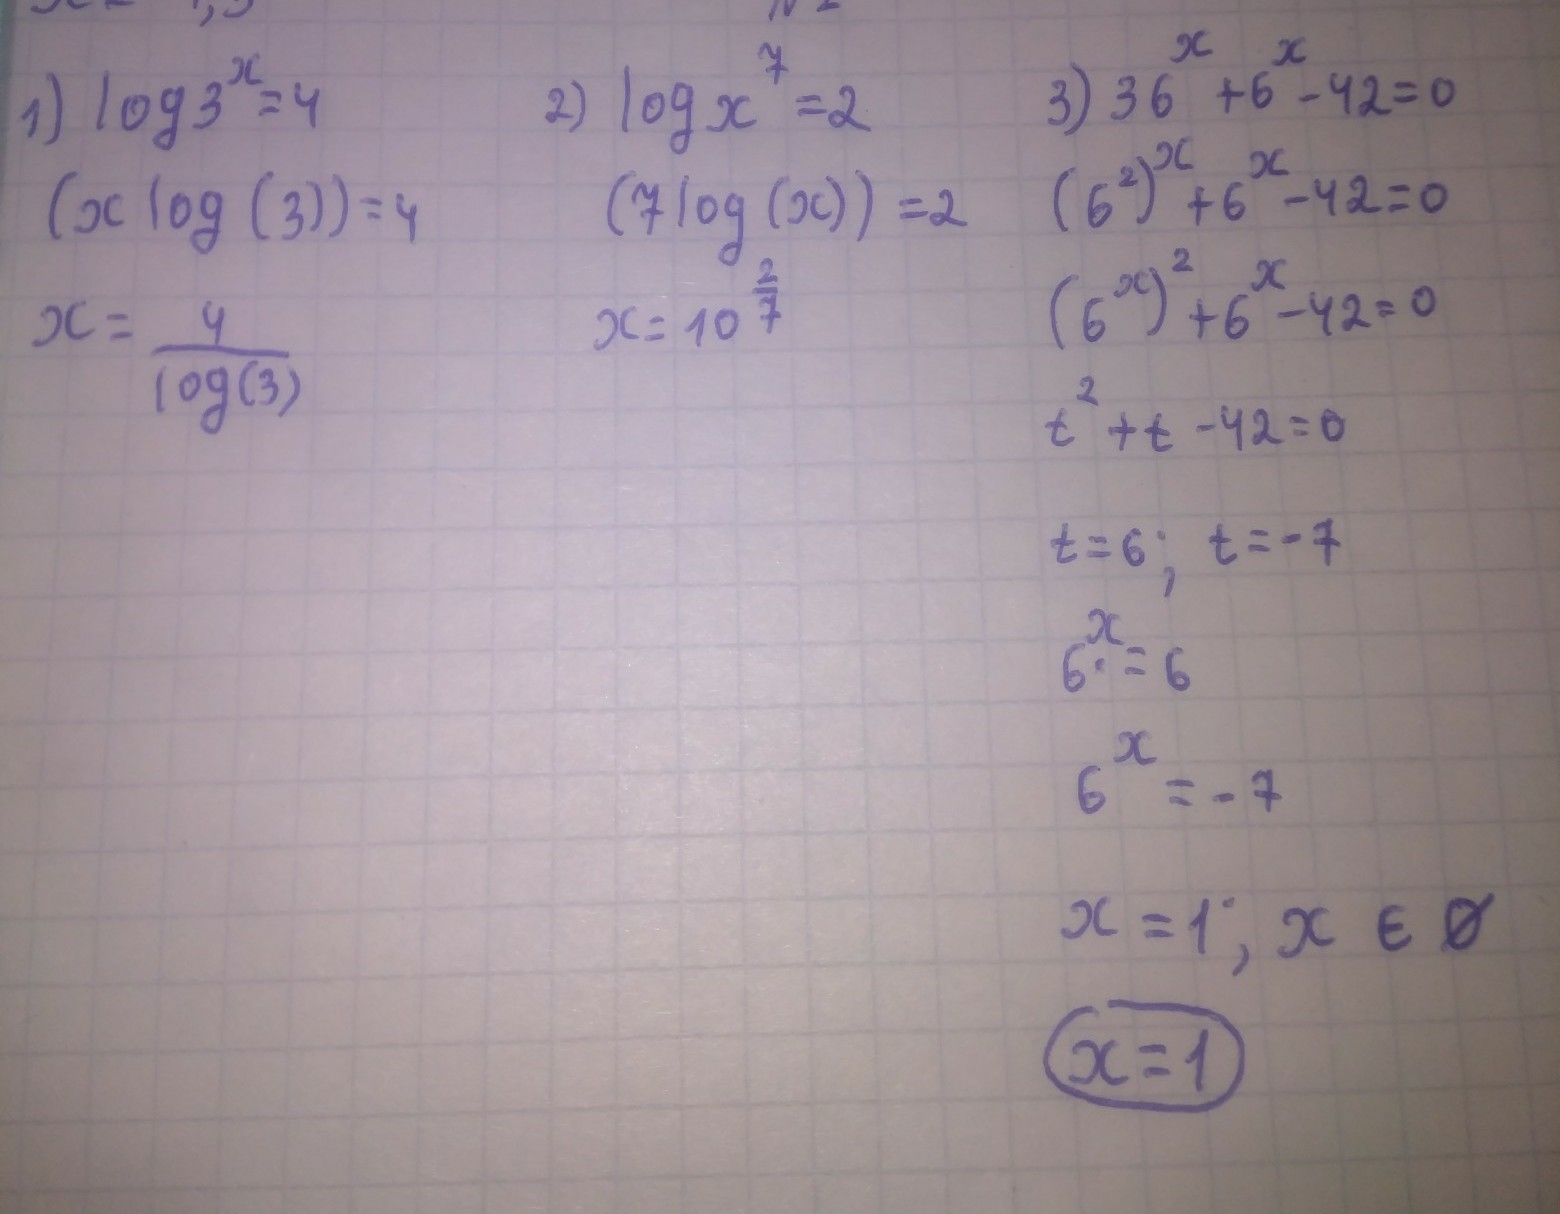 1) log 3^x = 4
(x log (3)) = 4
x = 4 / log(3)
2) log x^7 = 2
(7 log (x)) = 2
x = 10^(2/7)
3) 36^x + 6^x - 42 = 0
(6^2)^x + 6^x - 42 = 0
(6^x)^2 + 6^x - 42 = 0
t^2 + t - 42 = 0
t = 6; t = -7
6^x = 6
6^x = -7
x = 1; x ∈ Ø
x = 1